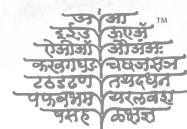 अ आ TM
इ ई उ ऊ ए ऍ
ऐ ओ ऑ औ अं अः
क ख ग घ ङ च छ ज झ ञ
ट ठ ड ढ ण त थ द ध न
प फ ब भ म य र ल व श
ष स ह ळ क्ष ज्ञ